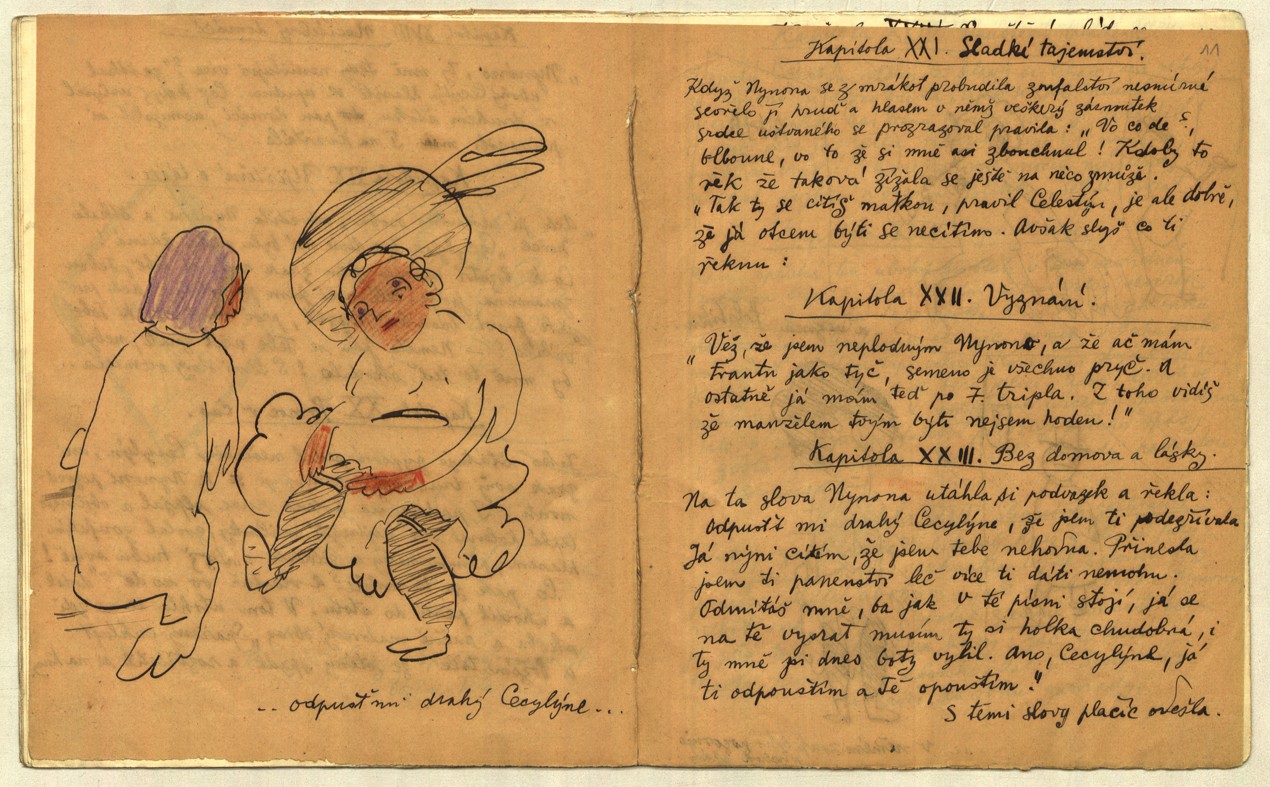 .. odpusť mi drahý Cecylýne...
11
Kapitola XXI. Sladké tajemství.
Když Nynona se z mrákot probudila zoufalství nesmírné
sevřelo jí hruď a hlasem v němž veškerý zármutek
srdce uštvaného se prozrazoval pravila: „Vo co de ?,
blboune, vo to že si mně asi zbouchnul! Kdoby to
řek že taková žížala se ještě na něco zmůže.
„Tak ty se cítíš matkou, pravil Celestýn, je ale dobře,
že já otcem býti se necítím. Avšak slyš co ti
řeknu :
Kapitola XXII. Vyznání.
„Věz, že jsem neplodným Nynono, a že ač mám
frantu jako tyč, semeno je všechno pryč. A
ostatně já mám teď po 7. tripla. Z toho vidíš
že manželem tvým býti nejsem hoden!"
Kapitola XXIII. Bez domova a lásky.
Na ta slova Nynona utáhla si podvazek a řekla:
Odpusť mi drahý Cecylýne, že jsem tě podezřívala
Já nyní cítím, že jsem tebe nehodna. Přinesla
jsem ti panenství leč více ti dáti nemohu.
Odmítáš mně, ba jak v té písni stojí, já se
na tě vysrat musím ty si holka chudobná, i
ty mně si dnes boty vylil. Ano, Cecylýne, já
ti odpouštím a tě opouštím!"
S těmi slovy plačíc odešla.